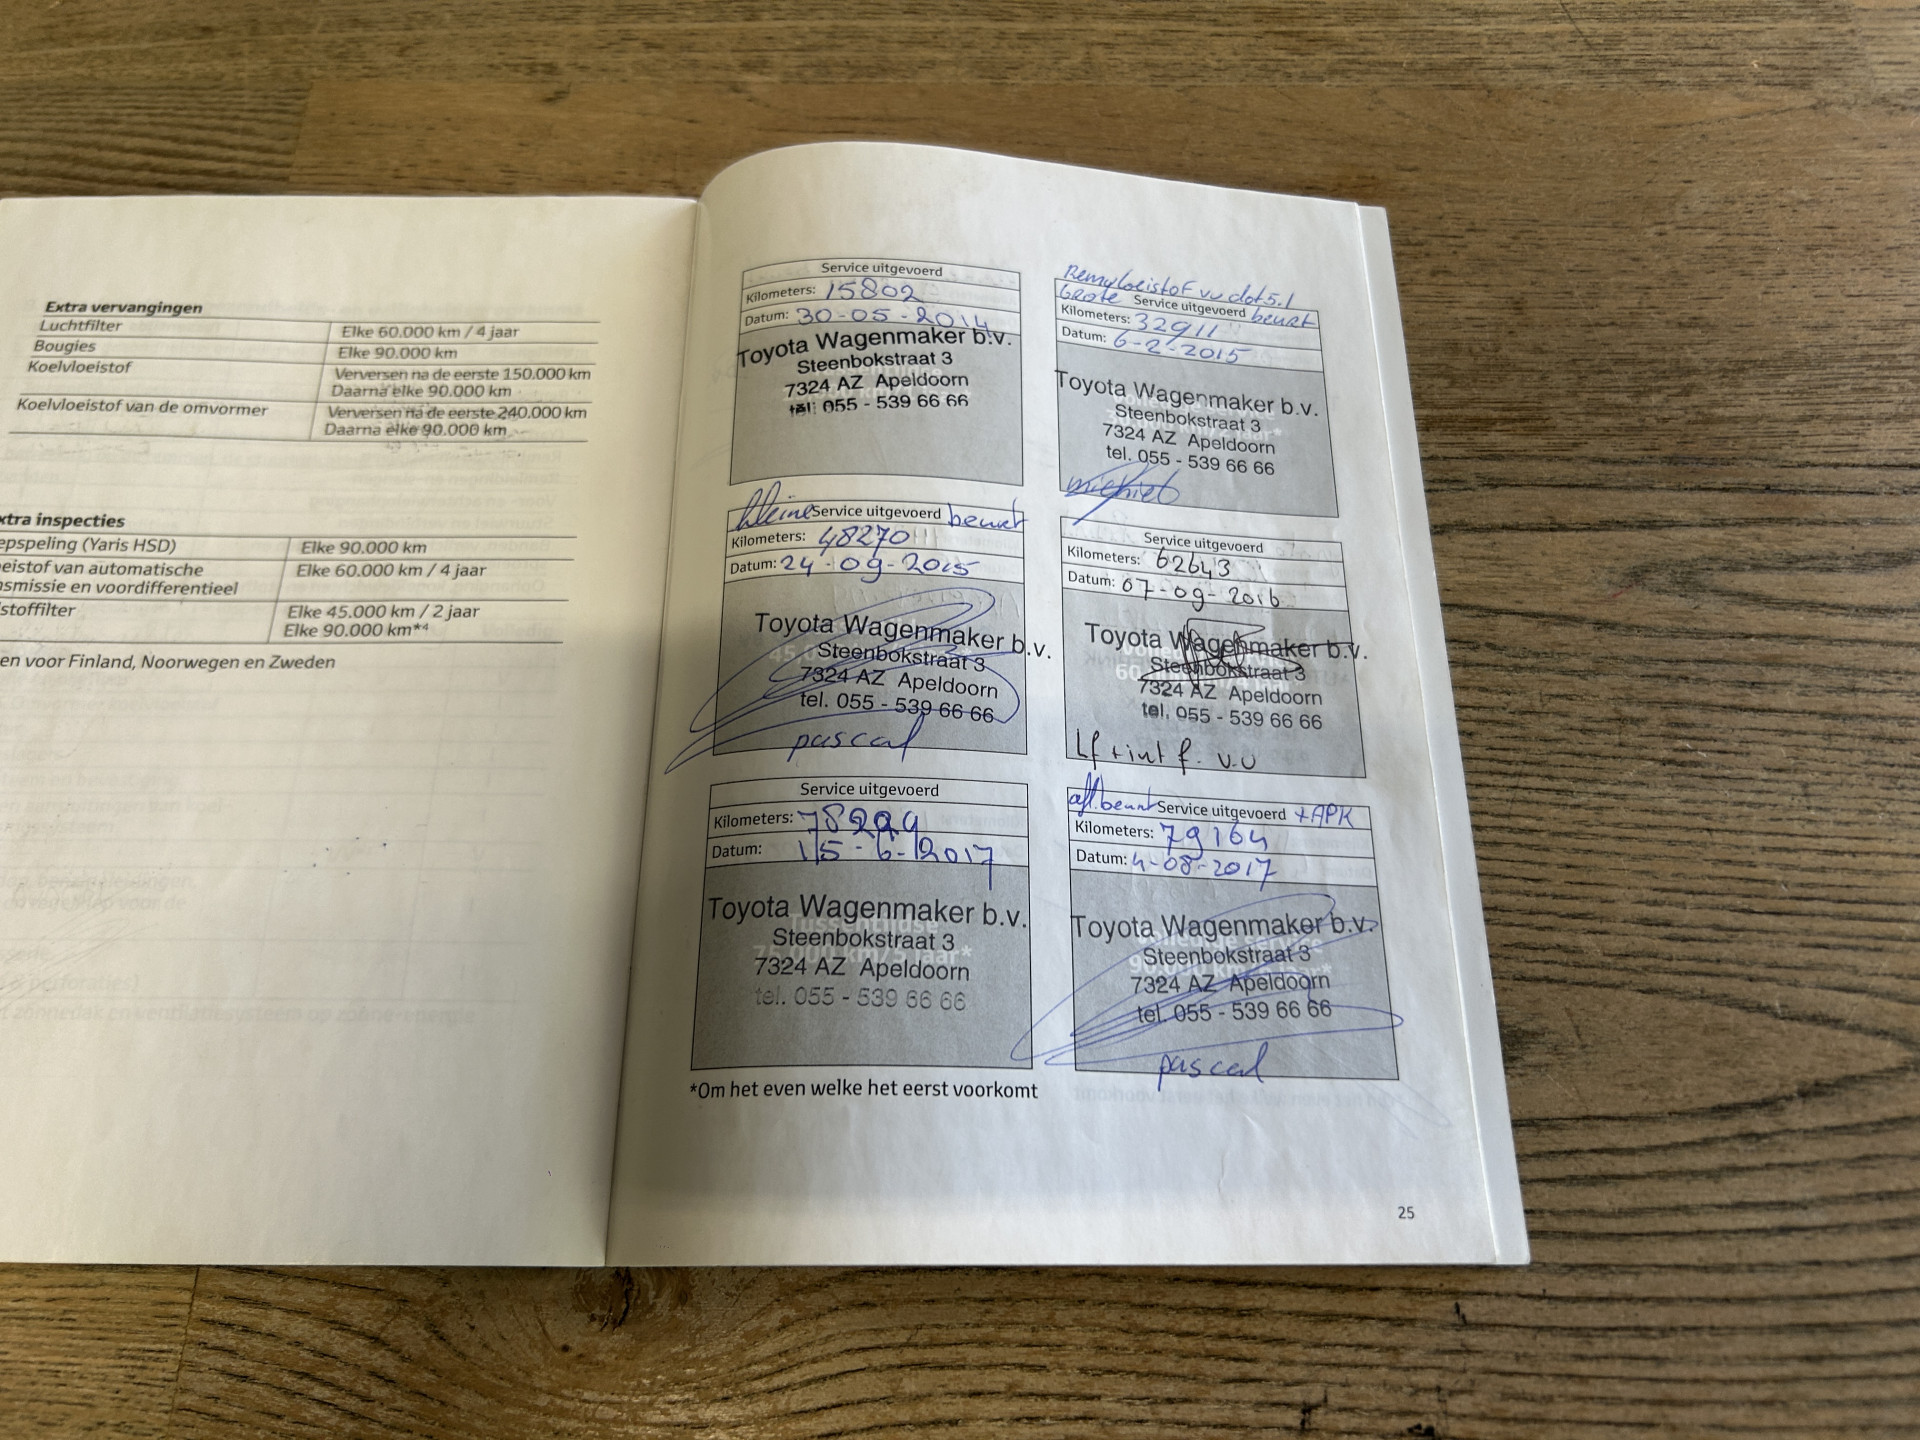 Extra vervangingen
Luchtfilter Elke 60.000 km / 4 jaar
Bougies Elke 90.000 km
Koelvloeistof Verversen na de eerste 150.000 km
Daarna elke 90.000 km
Koelvloeistof van de omvormer Verversen na de eerste 240.000 km
Daarna elke 90.000 km
xtra inspecties
epspeling (Yaris HSD) Elke 90.000 km
eistof van automatische Elke 60.000 km / 4 jaar
smissie en voordifferentieel
stoffilter Elke 45.000 km / 2 jaar
Elke 90.000 km*4
en voor Finland, Noorwegen en Zweden
Service uitgevoerd
Kilometers: 15802
Datum: 30-05-2014
Toyota Wagenmaker b.v.
Steenbokstraat 3
7324 AZ Apeldoorn
tel. 055 - 539 66 66
Remvloeistof vv dot 5.1
Grote Service uitgevoerd beurt
Kilometers: 32911
Datum: 6-2-2015
Toyota Wagenmaker b.v.
Steenbokstraat 3
7324 AZ Apeldoorn
tel. 055 - 539 66 66
michiel
kleine Service uitgevoerd beurt
Kilometers: 48270
Datum: 24-09-2015
Toyota Wagenmaker b.v.
Steenbokstraat 3
7324 AZ Apeldoorn
tel. 055 - 539 66 66
pascal
Service uitgevoerd
Kilometers: 62643
Datum: 07-09-2016
Toyota Wagenmaker b.v.
Steenbokstraat 3
7324 AZ Apeldoorn
tel. 055 - 539 66 66
Lf + int f. v.v
Service uitgevoerd
Kilometers:
Datum: 15-6-2017
Toyota Wagenmaker b.v.
Tussentijdse
Steenbokstraat 3
75.000 km/5 jaar*
7324 AZ Apeldoorn
tel. 055 - 539 66 66
afl.beurt Service uitgevoerd + APK
Kilometers: 79164
Datum: 4-08-2017
Toyota Wagenmaker b.v.
Steenbokstraat 3
7324 AZ Apeldoorn
tel. 055 - 539 66 66
pascal
*Om het even welke het eerst voorkomt
25